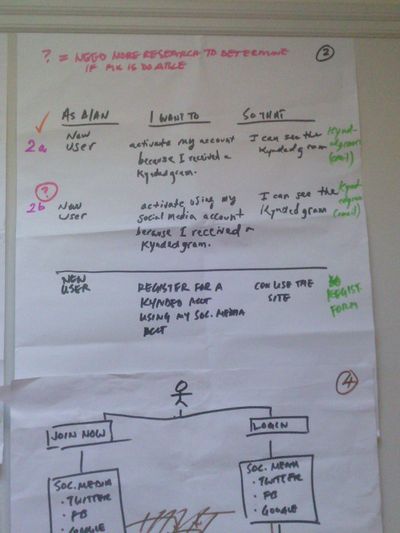 ? = NEED MORE RESEARCH TO DETERMINE
IF MK IS DOABLE
2
AS A/AN
I WANT TO
SO THAT
2a
New
User
activate my account
because I received a
Kyndedgram.
I can see the
Kyndedgram
Kynd-
edgram
(email)
?
2b
New
User
activate using my
social media account
because I received a
Kyndedgram.
I can see the
Kyndedgram
Kynd-
edgram
(email)
NEW
USER
REGISTER FOR A
KYNDED ACCT
USING MY SOC. MEDIA
ACCT
CAN USE THE
SITE
REGIST.
FORM
4
JOIN NOW
LOGIN
SOC. MEDIA
• TWITTER
• FB
• GOOGLE
SOC. MEDIA
• TWITTER
• FB
• GOOGLE